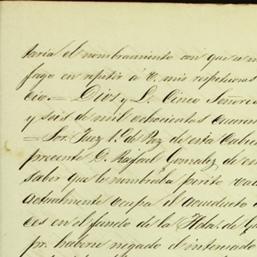 taria el nombramiento con que a m
fago en repetir á V. mis respetuosas
cio.= Dios y L. Cinco Señores
y seis de mil ochocientos cuaren
= Sor. Juez 1º de Paz de esta Cabec
presente D. Rafael Gonzalez de ve
saber que lo nombraba perito va
actualmente ocupa el acueducto d
cos en el fundo de la Hda. de Gu
pr. haberse negado el interesado